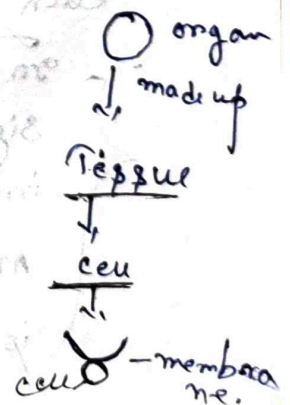 organ
made up
Tissue
cell
cell - membra
ne.